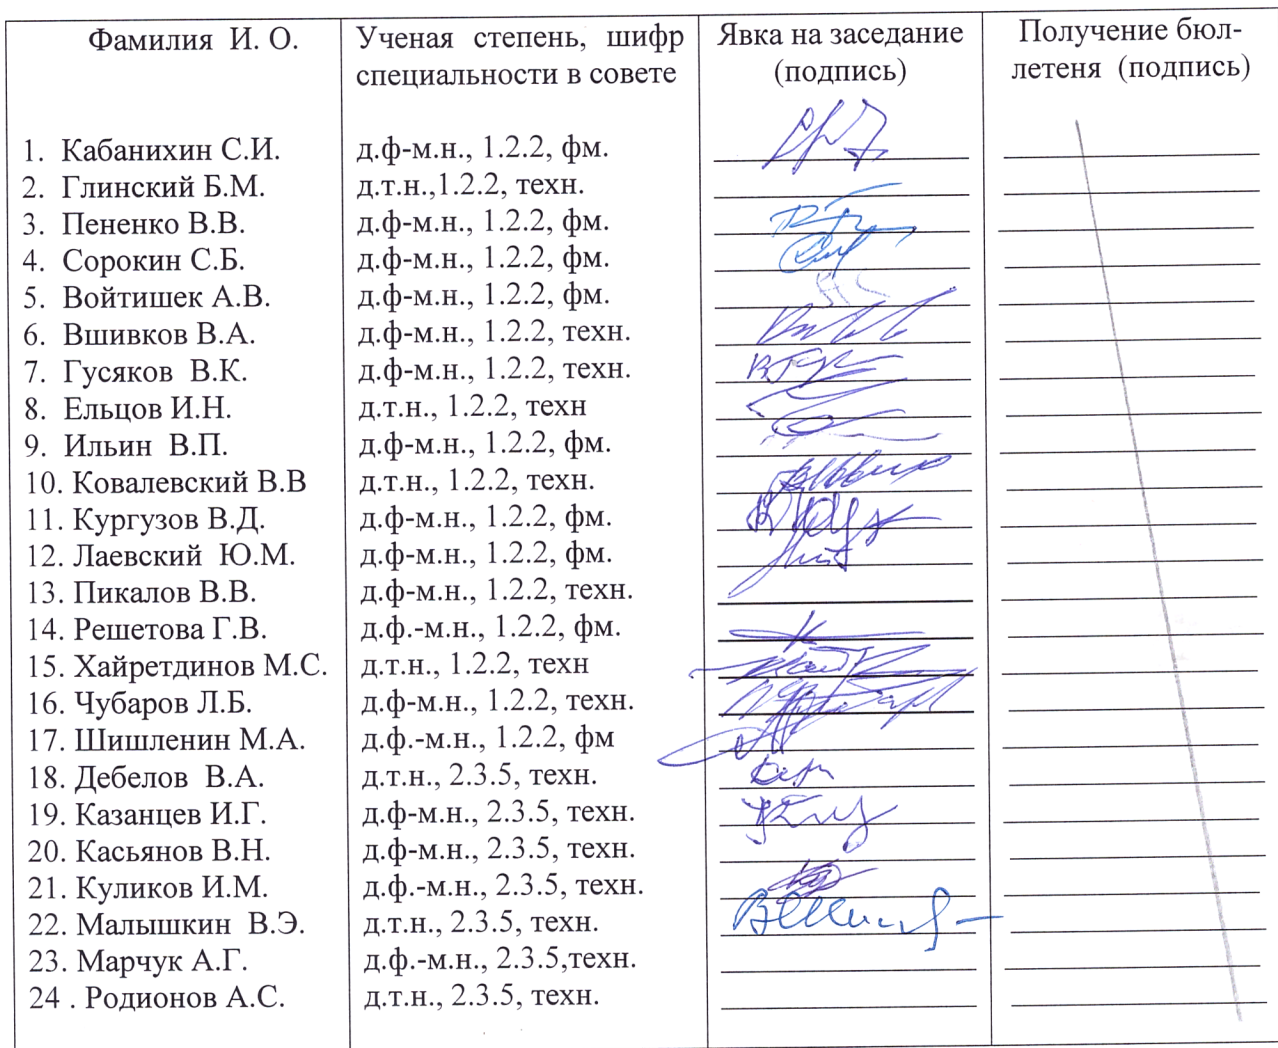 Фамилия И. О.
Ученая степень, шифр
специальности в совете
Явка на заседание
(подпись)
Получение бюл-
летеня (подпись)
1. Кабанихин С.И. д.ф-м.н., 1.2.2, фм.
2. Глинский Б.М. д.т.н.,1.2.2, техн.
3. Пененко В.В. д.ф-м.н., 1.2.2, фм.
4. Сорокин С.Б. д.ф-м.н., 1.2.2, фм.
5. Войтишек А.В. д.ф-м.н., 1.2.2, фм.
6. Вшивков В.А. д.ф-м.н., 1.2.2, техн.
7. Гусяков В.К. д.ф-м.н., 1.2.2, техн.
8. Ельцов И.Н. д.т.н., 1.2.2, техн
9. Ильин В.П. д.ф-м.н., 1.2.2, фм.
10. Ковалевский В.В д.т.н., 1.2.2, техн.
11. Кургузов В.Д. д.ф-м.н., 1.2.2, фм.
12. Лаевский Ю.М. д.ф-м.н., 1.2.2, фм.
13. Пикалов В.В. д.ф-м.н., 1.2.2, техн.
14. Решетова Г.В. д.ф.-м.н., 1.2.2, фм.
15. Хайретдинов М.С. д.т.н., 1.2.2, техн
16. Чубаров Л.Б. д.ф-м.н., 1.2.2, техн.
17. Шишленин М.А. д.ф.-м.н., 1.2.2, фм
18. Дебелов В.А. д.т.н., 2.3.5, техн.
19. Казанцев И.Г. д.ф-м.н., 2.3.5, техн.
20. Касьянов В.Н. д.ф-м.н., 2.3.5, техн.
21. Куликов И.М. д.ф.-м.н., 2.3.5, техн.
22. Малышкин В.Э. д.т.н., 2.3.5, техн.
23. Марчук А.Г. д.ф.-м.н., 2.3.5,техн.
24 . Родионов А.С. д.т.н., 2.3.5, техн.